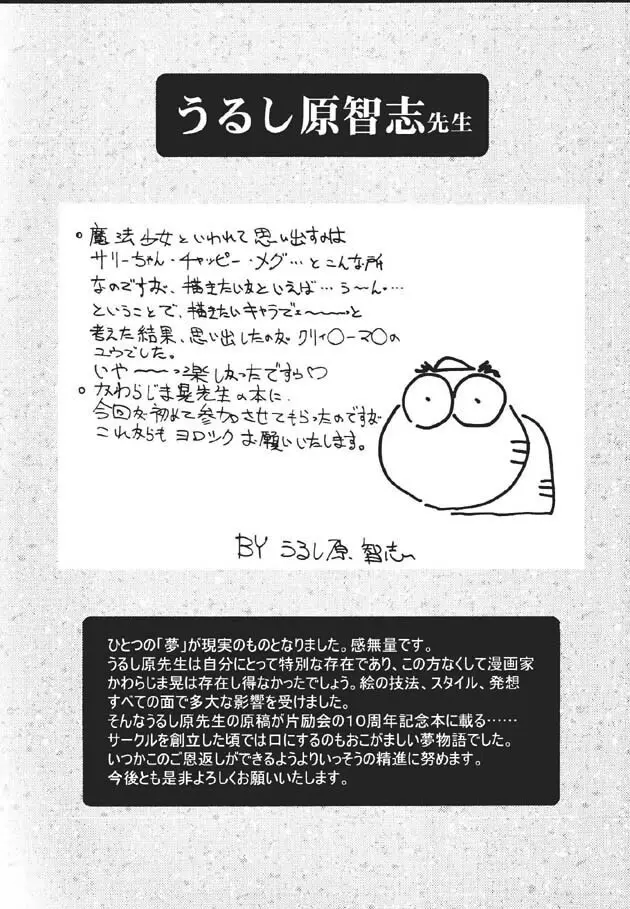 うるし原智志先生
○魔法少女といわれて思い出すのは
サリーちゃん・チャッピー・メグ…とこんな所
なのですが、描きたい女といえば…う〜ん…
ということで、描きたいキャラでェ〜〜〜っと
考えた結果、思い出したのがクリィ○ーマ○の
ユウでした。
いや〜〜〜っ楽しかったですゥ♡
○かわらじま晃先生の本に、
今回が初めて参加させてもらったのですが
これからもヨロシクお願いいたします。
BY うるし原、智志
ひとつの「夢」が現実のものとなりました。感無量です。
うるし原先生は自分にとって特別な存在であり、この方なくして漫画家
かわらじま晃は存在し得なかったでしょう。絵の技法、スタイル、発想
すべての面で多大な影響を受けました。
そんなうるし原先生の原稿が片励会の10周年記念本に載る……
サークルを創立した頃では口にするのもおこがましい夢物語でした。
いつかこのご恩返しができるようよりいっそうの精進に努めます。
今後とも是非よろしくお願いいたします。